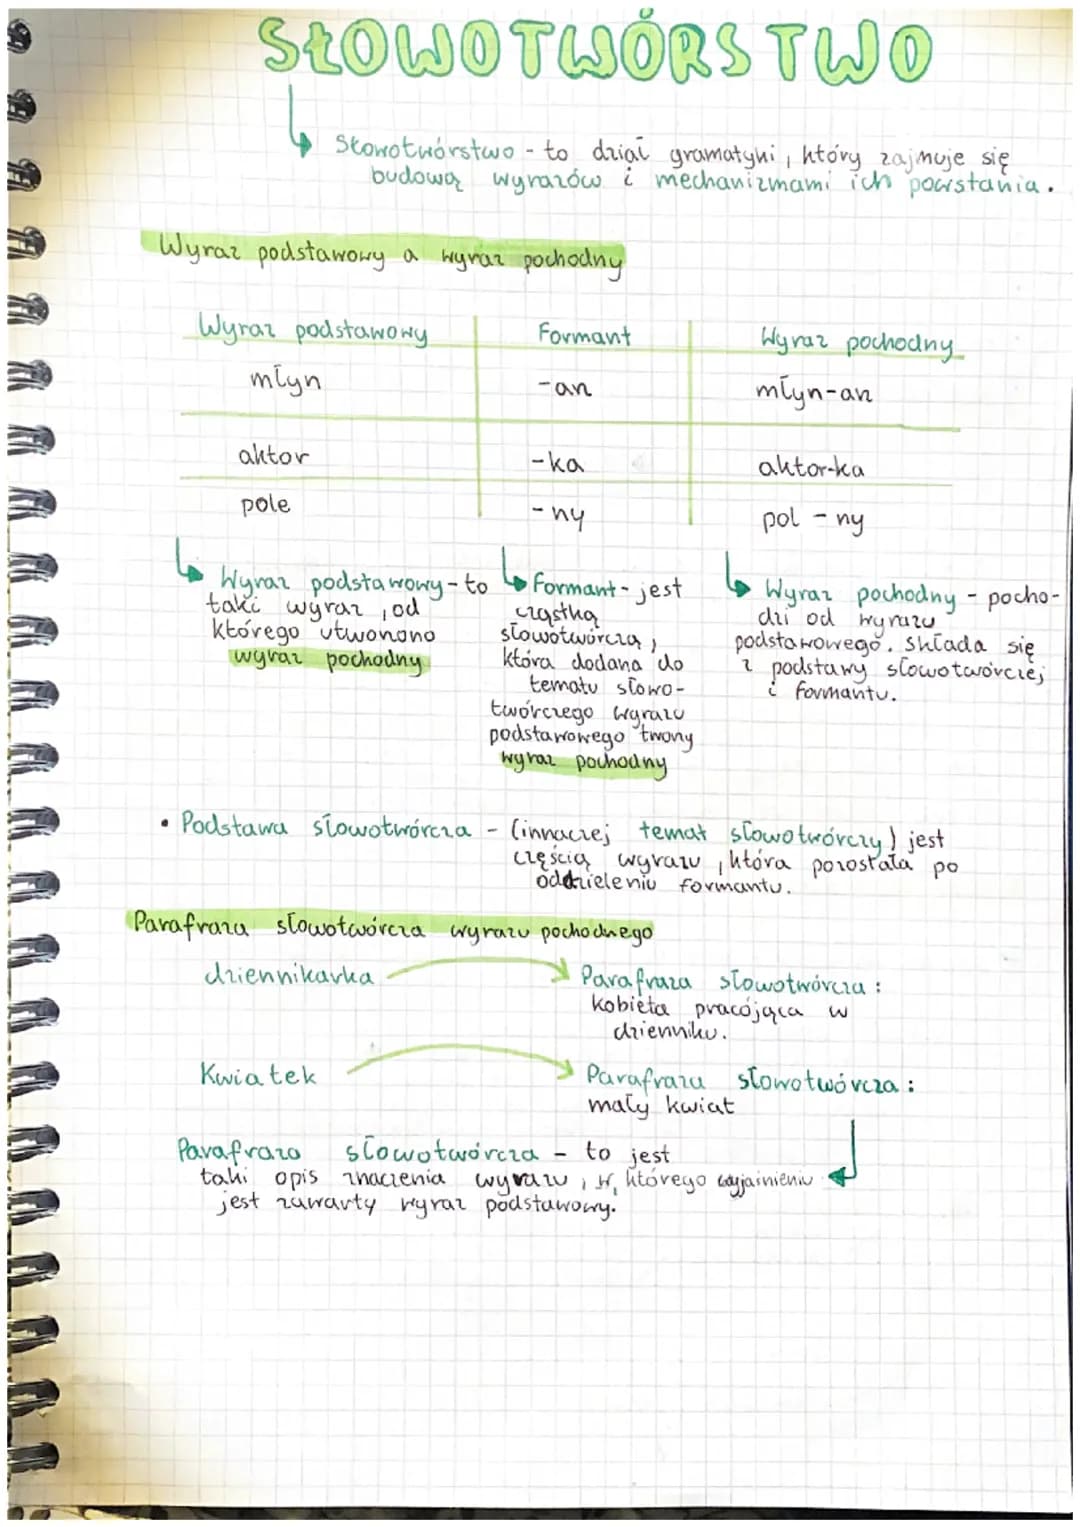 SŁOWOTWÓRSTWO
Słowotwórstwo - to dział gramatyki, który zajmuje się
budową wyrazów i mechanizmami ich powstania.
Wyraz podstawowy a wyraz pochodny
Wyraz podstawowy Formant Wyraz pochodny
młyn -arz młyn-arz
aktor -ka aktor-ka
pole -ny pol-ny
Wyraz podstawowy - to
taki wyraz, od
którego utworzono
wyraz pochodny
Formant - jest
cząstką
słowotwórczą,
która dodana do
tematu słowo-
twórczego wyrazu
podstawowego tworzy
wyraz pochodny
Wyraz pochodny - pocho-
dzi od wyrazu
podstawowego. Składa się
z podstawy słowotwórczej
i formantu.
• Podstawa słowotwórcza - (innaczej temat słowotwórczy) jest
częścią wyrazu, która pozostała po
oddzieleniu formantu.
Parafraza słowotwórcza wyrazu pochodnego
dziennikarka Parafraza słowotwórcza:
kobieta pracójąca w
dzienniku.
Kwiatek Parafraza słowotwórcza:
mały kwiat
Parafraza słowotwórcza - to jest
taki opis znaczenia wyrazu, w którego wyjaśnieniu
jest zawarty wyraz podstawowy.